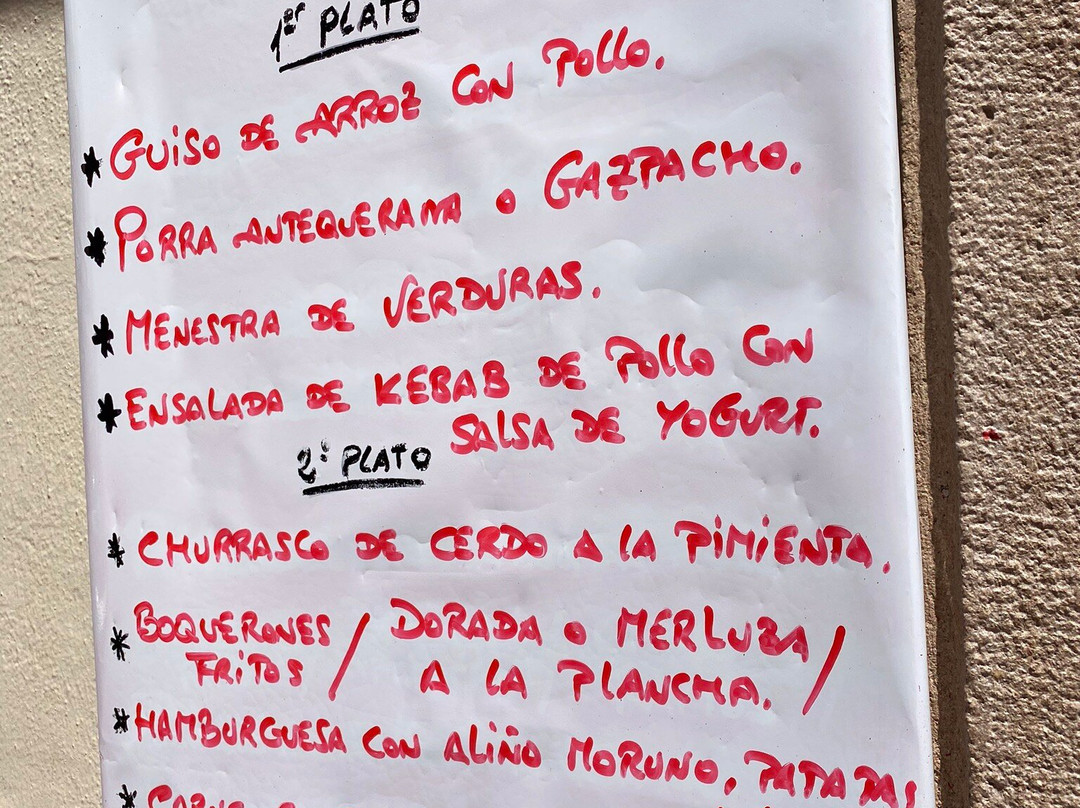 1er PLATO
* GUISO DE ARROZ CON POLLO.
* PORRA ANTEQUERANA O GAZPACHO.
* MENESTRA DE VERDURAS.
* ENSALADA DE KEBAB DE POLLO CON
SALSA DE YOGURT.
2º PLATO
* CHURRASCO DE CERDO A LA PIMIENTA.
* BOQUERONES / DORADA O MERLUZA /
FRITOS A LA PLANCHA.
* HAMBURGUESA CON ALIÑO MORUNO, PATATAS
*